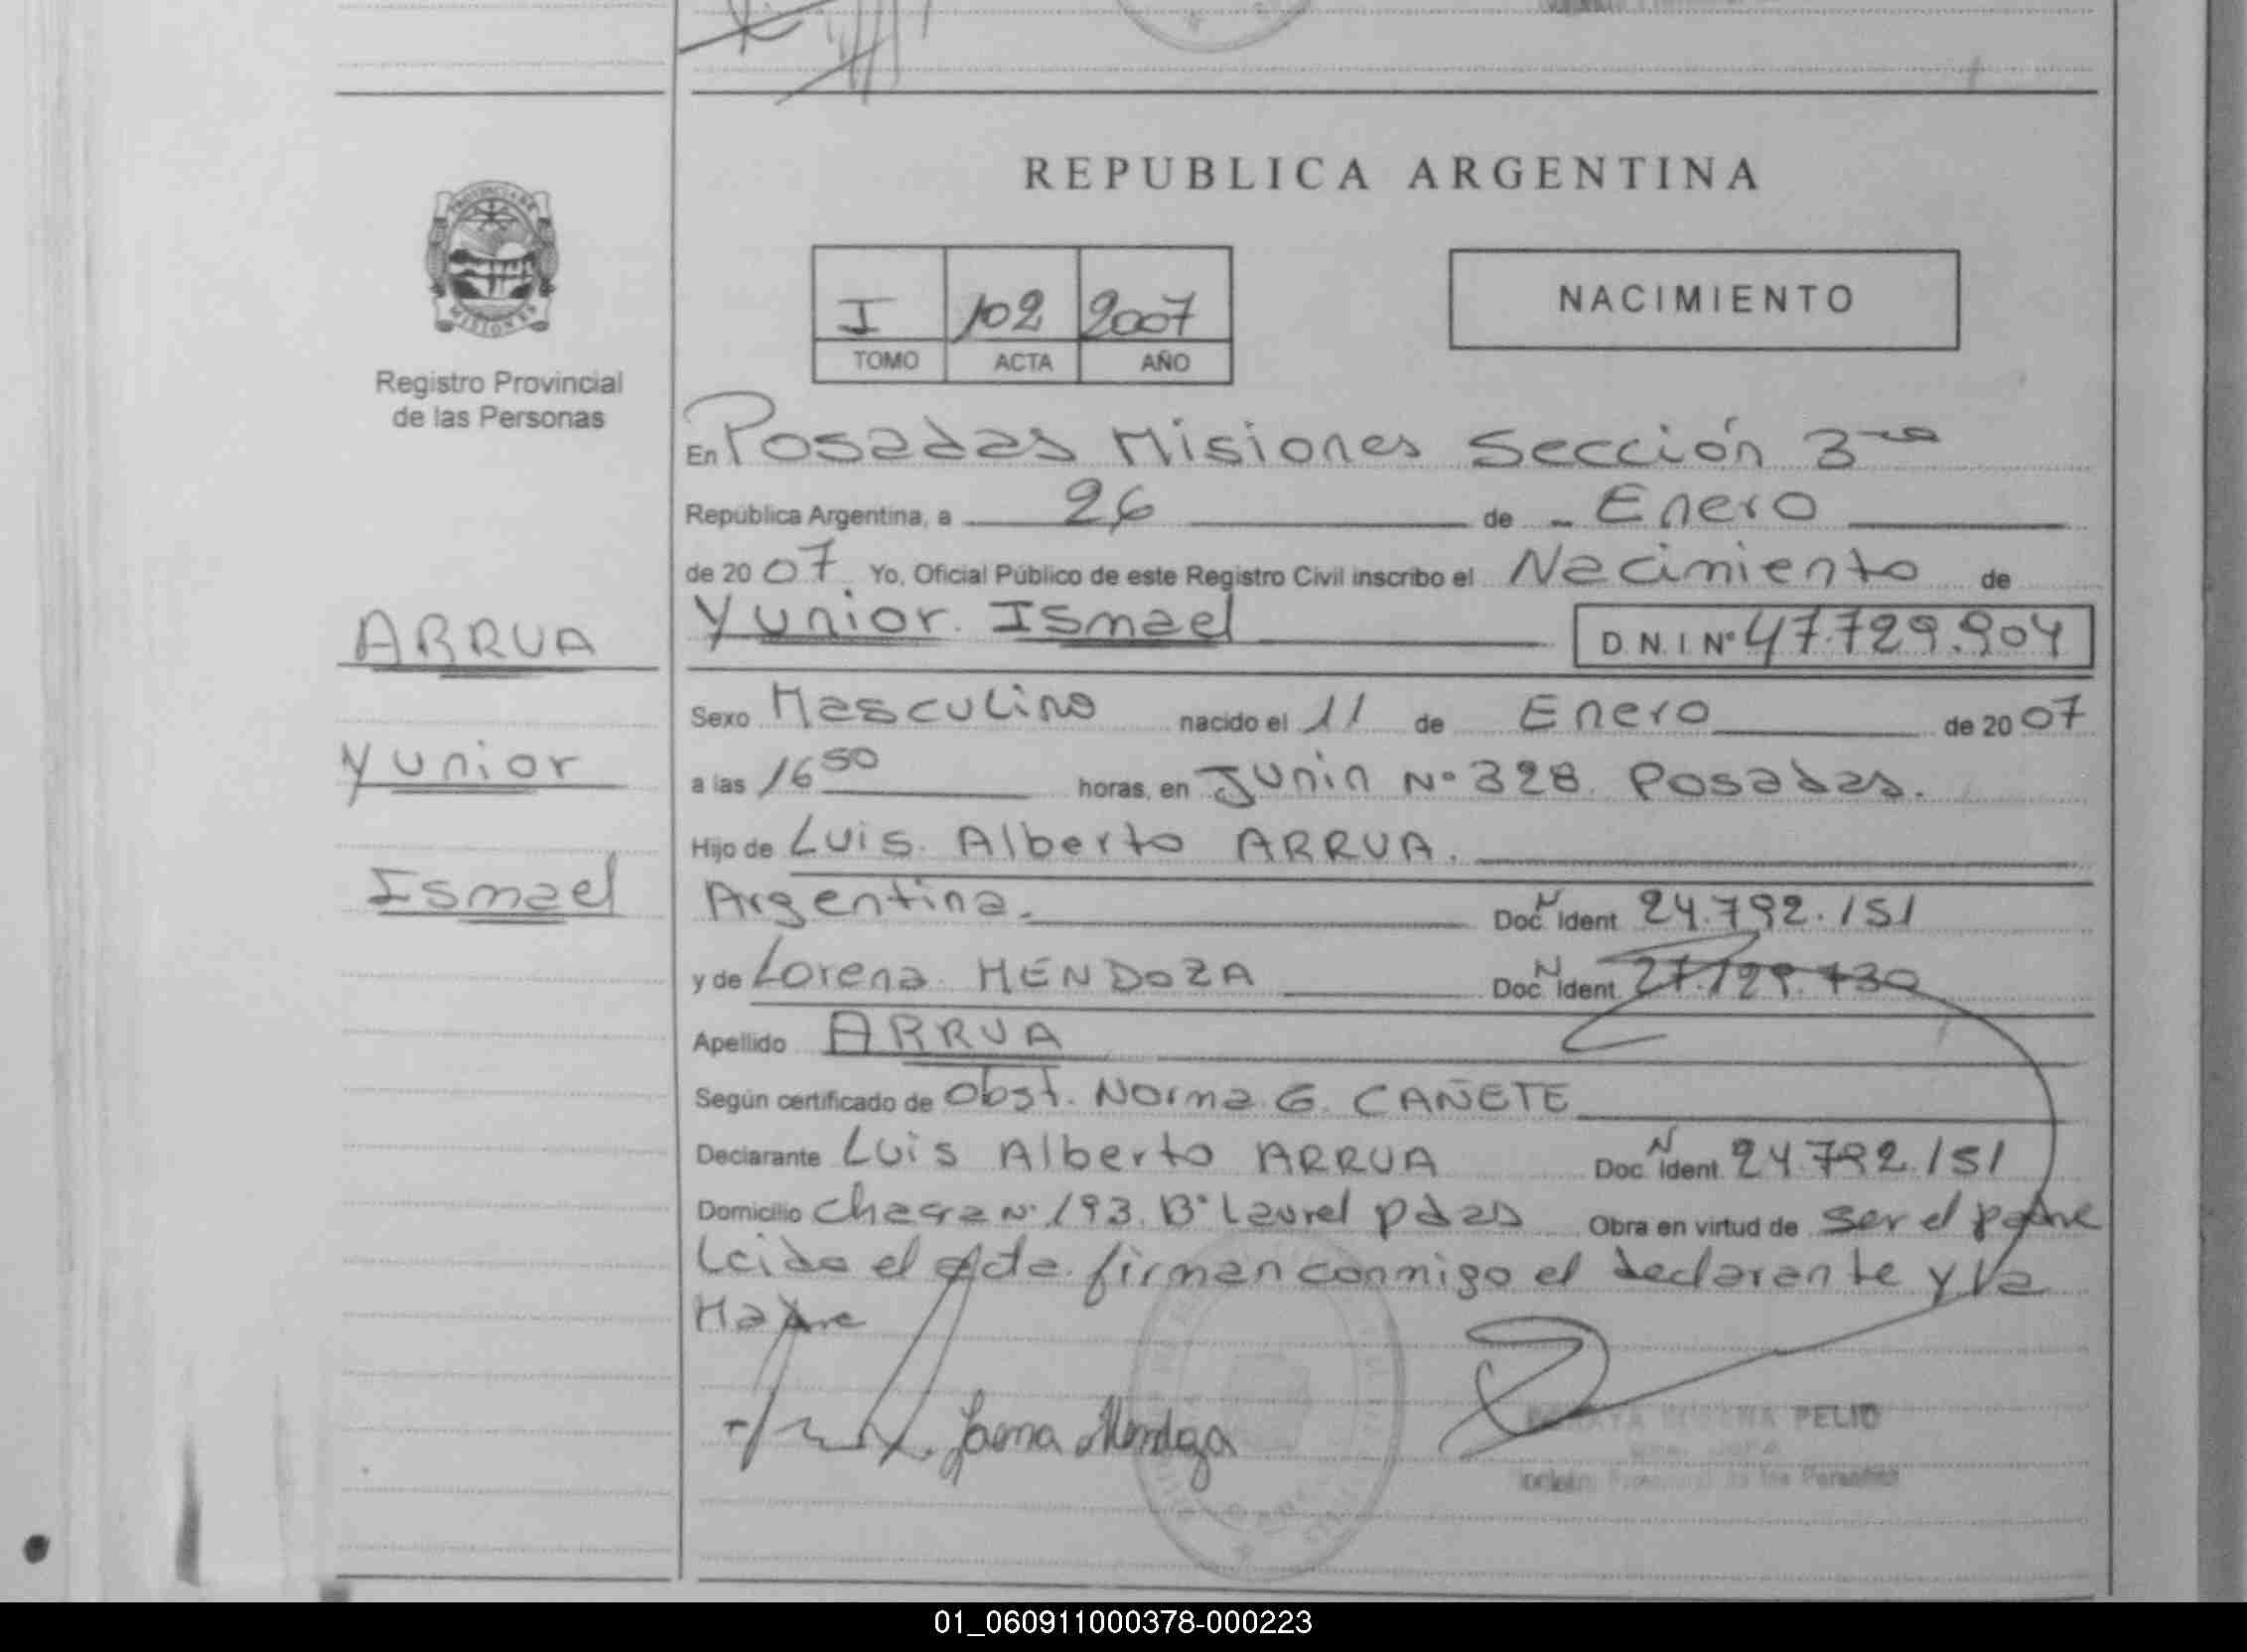 REPUBLICA ARGENTINA
PROVINCIA DE
MISIONES
Registro Provincial
de las Personas
I 102 2007
TOMO ACTA AÑO
NACIMIENTO
En Posadas Misiones Sección 3ra
República Argentina, a 26 de Enero
de 2007 Yo, Oficial Público de este Registro Civil inscribo el Nacimiento de
Yunior Ismael D.N.I Nº 47.729.904
ARRUA
Yunior
Ismael
Sexo Masculino nacido el 11 de Enero de 2007
a las 16 50 horas, en Junin Nº 328. Posadas.
Hijo de Luis Alberto ARRUA.
Argentina. Doc. N Ident. 24.792.151
y de Lorena MENDOZA Doc. N Ident. 27.129.730
Apellido ARRUA
Según certificado de Obst. Norma G. CAÑETE
Declarante Luis Alberto ARRUA Doc. N Ident. 24.792.151
Domicilio Chacra Nº 193. Bº Laurel pdas Obra en virtud de ser el padre
Leida el acta firman conmigo el declarante y la
Madre
Lorena Mendoza
PELIO
de las Personas
01_060911000378-000223